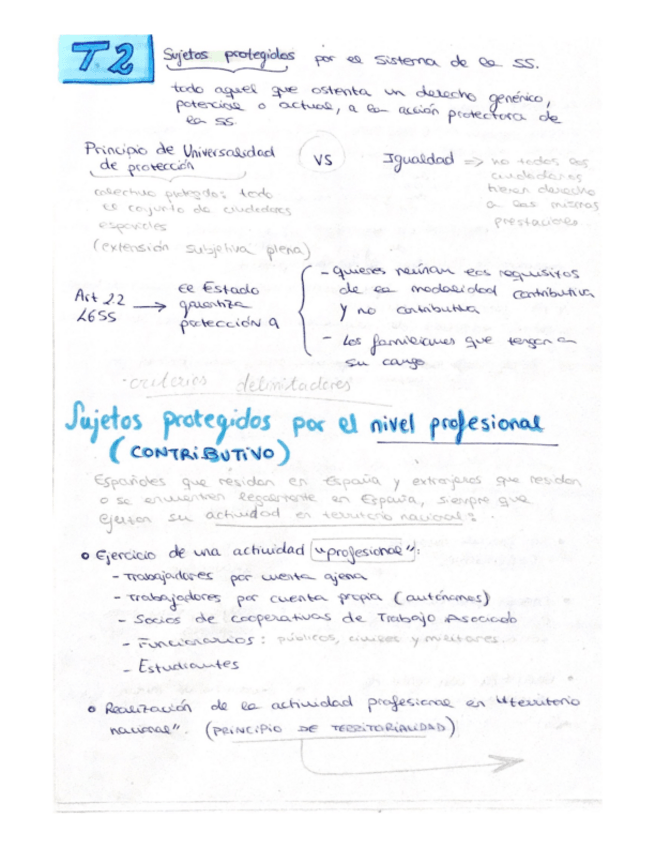 T.2
Sujetos protegidos por el sistema de la SS.
todo aquel que ostenta un derecho genérico,
potencial o actual, a la acción protectora de
la SS.
Principio de Universalidad
de protección
colectivo protegido: todo
el conjunto de ciudadanos
españoles
(extensión subjetiva plena)
VS
Igualdad => no todos los
ciudadanos
tienen derecho
a las mismas
prestaciones.
Art 2.2
LGSS
el Estado
garantiza
protección a
- quienes reúnan los requisitos
de la modalidad contributiva
y no contributiva
- Los familiares que tengan a
su cargo
· criterios delimitadores
Sujetos protegidos por el nivel profesional
(CONTRIBUTIVO)
Españoles que residan en España y extranjeros que residan
o se encuentren legalmente en España, siempre que
ejerzan su actividad en territorio nacional:
Ejercicio de una actividad "profesional":
- Trabajadores por cuenta ajena
- Trabajadores por cuenta propia (autónomos)
- Socios de cooperativas de Trabajo Asociado
- Funcionarios: públicos, civiles y militares.
- Estudiantes
Realización de la actividad profesional en "territorio
nacional". (PRINCIPIO DE TERRITORIALIDAD)